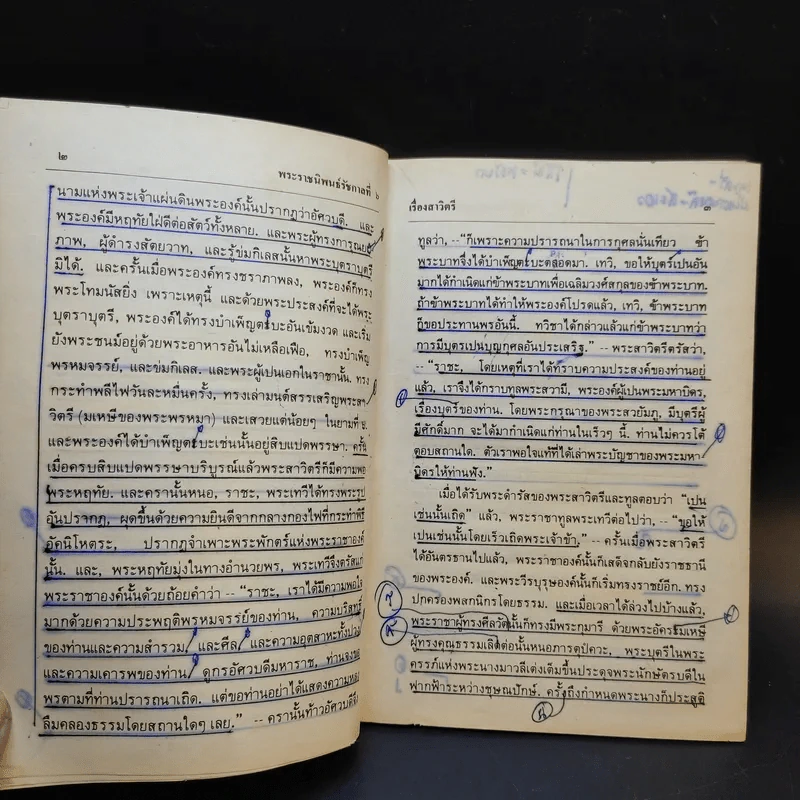 ๒
พระราชนิพนธ์รัชกาลที่ ๖
นามแห่งพระเจ้าแผ่นดินพระองค์นั้นปรากฏว่าอัศวบดี. และ
พระองค์มีหฤทัยใฝ่ดีต่อสัตว์ทั้งหลาย. และพระผู้ทรงการุณย
ภาพ, ผู้ดำรงสัตยวาท, และรู้ข่มกิเลสนั้นหาพระบุตราบุตรี
มิได้. และครั้นเมื่อพระองค์ทรงชราภาพลง, พระองค์ก็ทรง
พระโทมนัสยิ่ง เพราะเหตุนี้ และด้วยพระประสงค์ที่จะได้พระ
บุตราบุตรี, พระองค์ได้ทรงบำเพ็ญตะบะอันเข้มงวด และเริ่ม
ยังพระชนม์อยู่ด้วยพระอาหารอันไม่เหลือเฟือ, ทรงบำเพ็ญ
พรหมจรรย์, และข่มกิเลส. และพระผู้เปนเอกในราชานั้น, ทรง
กระทำพลีไฟวันละหมื่นครั้ง, ทรงเล่ามนต์สรรเสริญพระสา
วิตรี (มเหษีของพระพรหมา) และเสวยแต่น้อยๆ ในยามที่ ๖.
และพระองค์ได้บำเพ็ญตะบะเช่นนั้นอยู่สิบแปดพรรษา. ครั้น
เมื่อครบสิบแปดพรรษาบริบูรณ์แล้วพระสาวิตรีก็มีความพอ
พระหฤทัย. และครานั้นหนอ, ราชะ, พระเทวีได้ทรงพระรูป
อันปรากฏ, ผุดขึ้นด้วยความยินดีจากกลางกองไฟที่กระทำพิธี
อัคนิโหตระ, ปรากฏจำเพาะพระพักตร์แห่งพระราชาองค์
นั้น. และ, พระหฤทัยมุ่งในทางอำนวยพร, พระเทวีจึงตรัสแก่
พระราชาองค์นั้นด้วยถ้อยคำว่า -- "ราชะ, เราได้มีความพอใจ
มากด้วยความประพฤติพรหมจรรย์ของท่าน, ความบริสุทธิ์
ของท่านและความสำรวม และศีล และความอุตสาหะทั้งปวง
และความเคารพของท่าน ดูกรอัศวบดีมหาราช, ท่านจงขอ
พรตามที่ท่านปรารถนาเถิด. แต่ขอท่านอย่าได้แสดงความหลง
ลืมคลองธรรมโดยสถานใดๆ เลย." -- ครานั้นท้าวอัศวบดีจึง
เรื่องสาวิตรี
๓
ทูลว่า, -- "ก็เพราะความปรารถนาในการกุศลนั่นเทียว ข้า
พระบาทจึงได้บำเพ็ญตะบะตลอดมา. เทวิ, ขอให้บุตรเปนอัน
มากได้กำเนิดแก่ข้าพระบาทเพื่อเฉลิมวงศ์สกุลของข้าพระบาท.
ถ้าข้าพระบาทได้ทำให้พระองค์โปรดแล้ว, เทวิ, ข้าพระบาท
ก็ขอประทานพรอันนี้. ทวิชาได้กล่าวแล้วแก่ข้าพระบาทว่า
การมีบุตรเปนบุญกุศลอันประเสริฐ." -- พระสาวิตรีตรัสว่า,
-- "ราชะ, โดยเหตุที่เราได้ทราบความประสงค์ของท่านอยู่
แล้ว, เราจึงได้กราบทูลพระสวามี, พระองค์ผู้เปนพระมหาบิดร,
เรื่องบุตรของท่าน. โดยพระกรุณาของพระสวยัมภู, มีบุตรีผู้
มีศักดิ์มาก จะได้มากำเนิดแก่ท่านในเร็วๆ นี้. ท่านไม่ควรโต้
ตอบสถานใด. ตัวเราพอใจแท้ที่ได้เล่าพระบัญชาของพระมหา
บิดรให้ท่านฟัง."
เมื่อได้รับพระดำรัสของพระสาวิตรีและทูลตอบว่า "เปน
เช่นนั้นเถิด" แล้ว, พระราชาทูลพระเทวีต่อไปว่า, -- "ขอให้
เปนเช่นนั้นโดยเร็วเถิดพระเจ้าข้า," -- ครั้นเมื่อพระสาวิตรี
ได้อันตรธานไปแล้ว, พระราชาองค์นั้นก็เสด็จกลับยังราชธานี
ของพระองค์. และพระวีรบุรุษองค์นั้นก็เริ่มทรงราชย์อีก, ทรง
ปกครองพสกนิกรโดยธรรม. และเมื่อเวลาได้ล่วงไปบ้างแล้ว,
พระราชาผู้ทรงศีลวัตนั้นก็ทรงมีพระกุมารี ด้วยพระอัครมเหษี
ผู้ทรงคุณธรรมเลิศต่อนั้นหนอภารตุปัควะ, พระบุตรีในพระ
ครรภ์แห่งพระนางมาลวีเต่งเติมขึ้นประดุจพระนักษัตรบดีใน
ฟากฟ้าระหว่างชุษณปักษ์. ครั้งถึงกำหนดพระนางก็ประสูติ